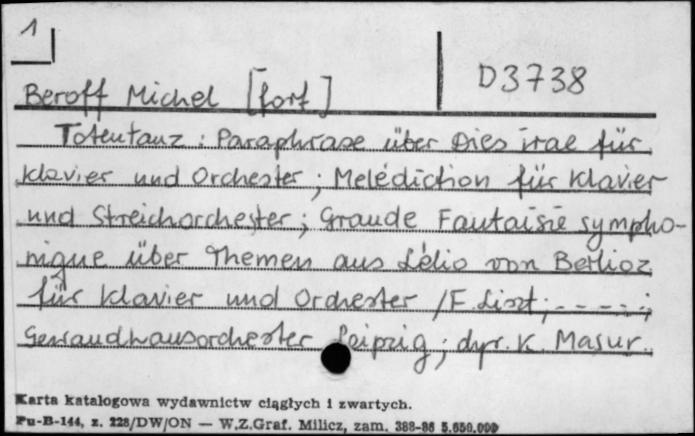 1
D3738
Beroff Michel [fort]
Totentanz : Paraphrase über Dies irae für
Klavier und Orchester ; Melédiction für Klavier
und Streichorchester ; Grande Fantaisie sympho-
nique über Themen aus Lélio von Berlioz
für Klavier und Orchester /F. Liszt ; - - - - - ;
Gewandhausorchester Leipzig ; dyr. K. Masur.
Karta katalogowa wydawnictw ciągłych i zwartych.
Pu-B-144, z. 228/DW/ON — W.Z.Graf. Milicz, zam. 388-86 5.650.000